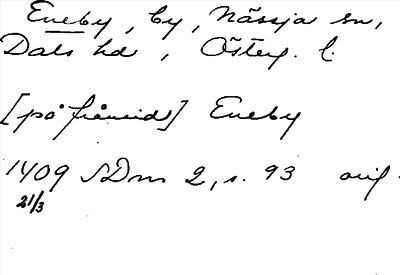 Eneby, by, Nässja sn,
Dals hd, Österg. l.
[på fråmsid] Eneby
1409 SDns 2, s. 93 orig.
21/3